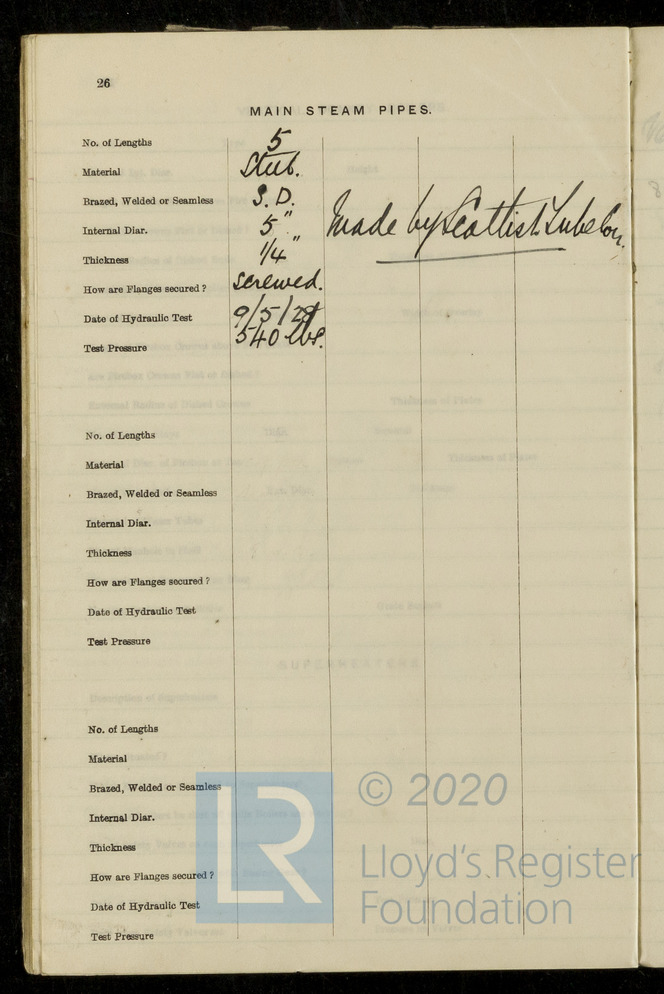 26
MAIN STEAM PIPES.
No. of Lengths 5
Material Steel.
Brazed, Welded or Seamless S. D.
Internal Diar. 5"
Thickness 1/4"
How are Flanges secured? screwed.
Date of Hydraulic Test 9/5/29
Test Pressure 540 lbs.
Made by Scottish Tube Co.
No. of Lengths
Material
Brazed, Welded or Seamless
Internal Diar.
Thickness
How are Flanges secured?
Date of Hydraulic Test
Test Pressure
No. of Lengths
Material
Brazed, Welded or Seamless
Internal Diar.
Thickness
How are Flanges secured?
Date of Hydraulic Test
Test Pressure
LR
© 2020
Lloyd's Register
Foundation